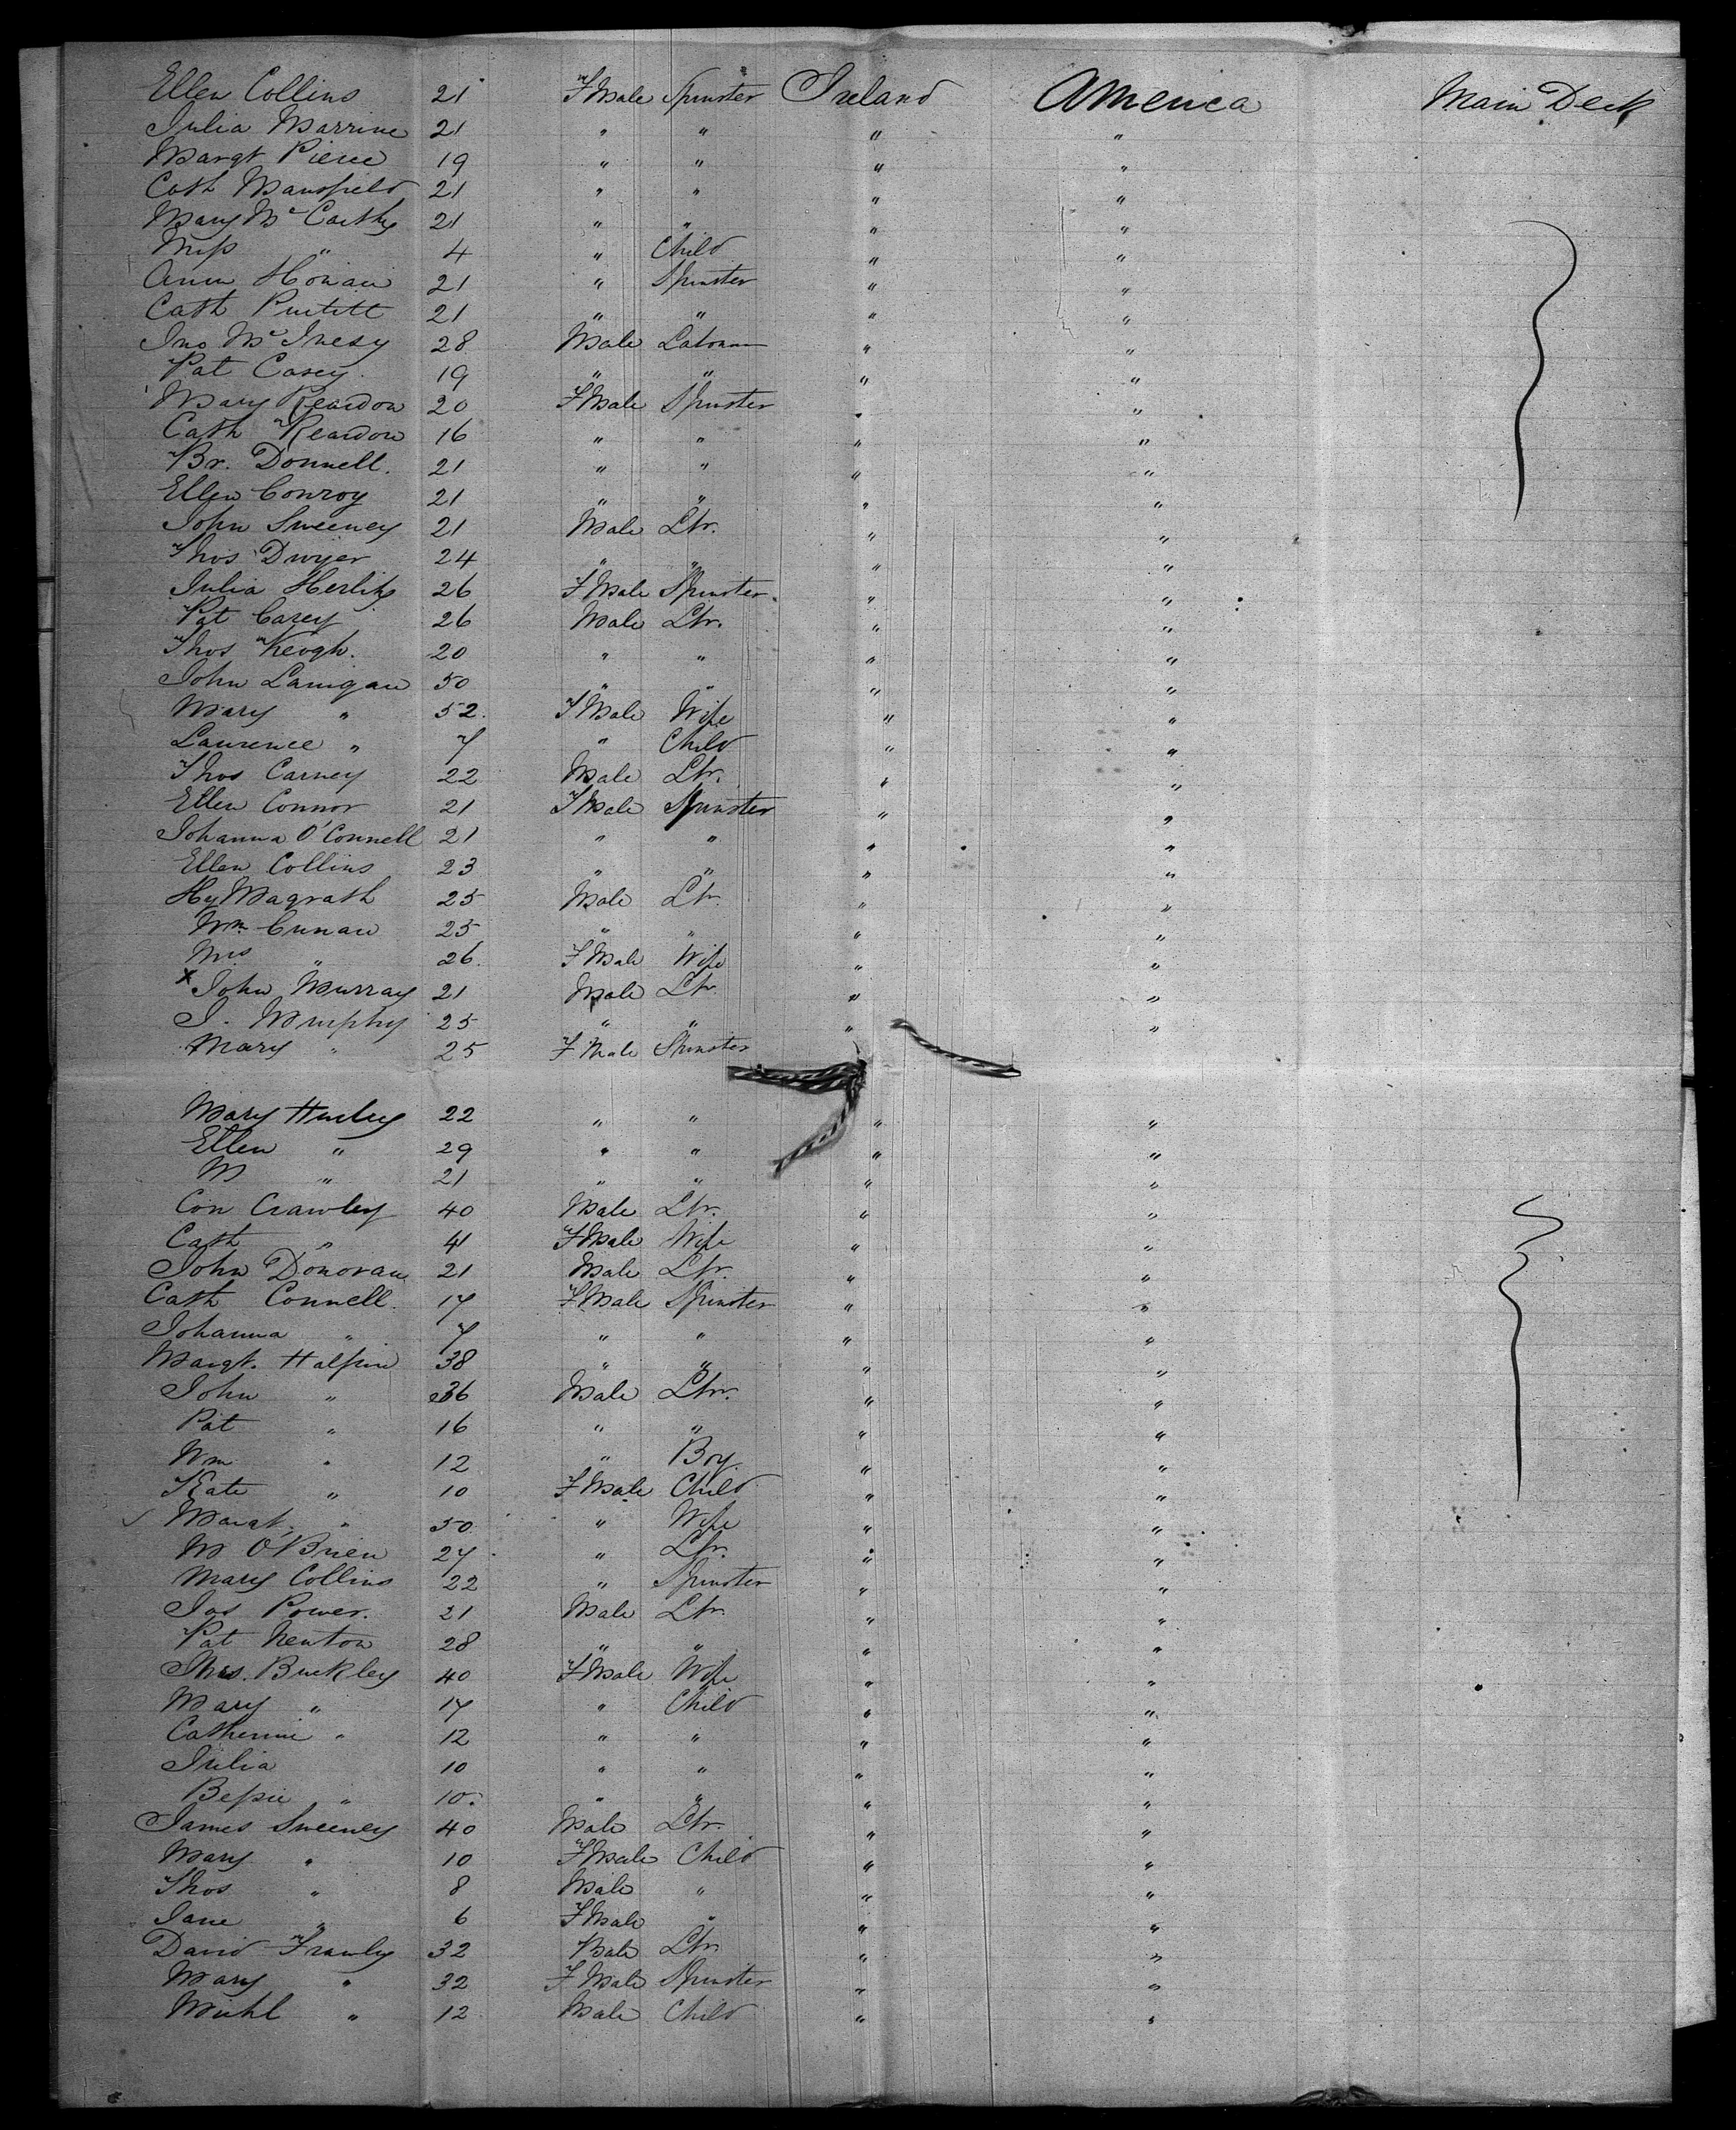 Ellen Collins 21 F Male Spinster Ireland America Main Deck
Julia Marrine 21 " " " "
Margt Pierce 19 " " " "
Cath Mansfield 21 " " " "
Mary McCarthy 21 " " " "
Miss " 4 " Child " "
Ann Honan 21 " Spinster " "
Cath 21 " " " "
Jno Mc 28 Male Labourer " "
Pat Casey 19 " " " "
Mary Reardon 20 F Male Spinster " "
Cath Reardon 16 " " " "
Br. Donnell. 21 " " " "
Ellen Conroy 21 " " " "
John Sweeney 21 Male Lbr. " "
Thos Dwyer 24 " " " "
Julia Herlihy 26 F Male Spinster " "
Pat Carey 26 Male Lbr. " "
Thos Keogh. 20 " " " "
John Lanigan 50 " " " "
Mary " 52. F Male Wife " "
Laurence " 7 " Child " "
Thos Carney 22 Male Lbr. " "
Ellen Connor 21 F Male Spinster " "
Johanna O'Connell 21 " " " "
Ellen Collins 23 " " " "
Hy Magrath 25 Male Lbr. " "
Wm Cunan 25 " " " "
Mrs " 26. F Male Wife " "
x John Murray 21 Male Lbr " "
J. Murphy 25 " " " "
Mary " 25 F Male Spinster
Mary Hurley 22 " " " "
Ellen " 29 " " " "
M " 21 " " " "
Con Crawley 40 Male Lbr. " "
Cath " 41 F Male Wife " "
John Donovan 21 Male Lbr. " "
Cath Connell. 17 F Male Spinster " "
Johanna " 7 " " " "
Margt. Halpin 38 " " " "
John " 36 Male Lbr. " "
Pat " 16 " " " "
Wm " 12 " Boy. " "
Kate " 10 F Male Child " "
Margt. " 50 " Wife " "
M O'Brien 27 " Lbr. " "
Mary Collins 22 " Spinster " "
Jas Power. 21 Male Lbr. " "
Pat Newton 28 " " " "
Mrs. Buckley 40 F Male Wife " "
Mary " 17 " Child " "
Catherine " 12 " " " "
Julia 10 " " " "
Bessie " 10. " " " "
James Sweeney 40 Male Lbr. " "
Mary " 10 F Male Child " "
Thos " 8 Male " " "
Jane " 6 F Male " " "
David Frawley 32 Male Lbr. " "
Mary " 32 F Male Spinster " "
Michl " 12 Male Child " "